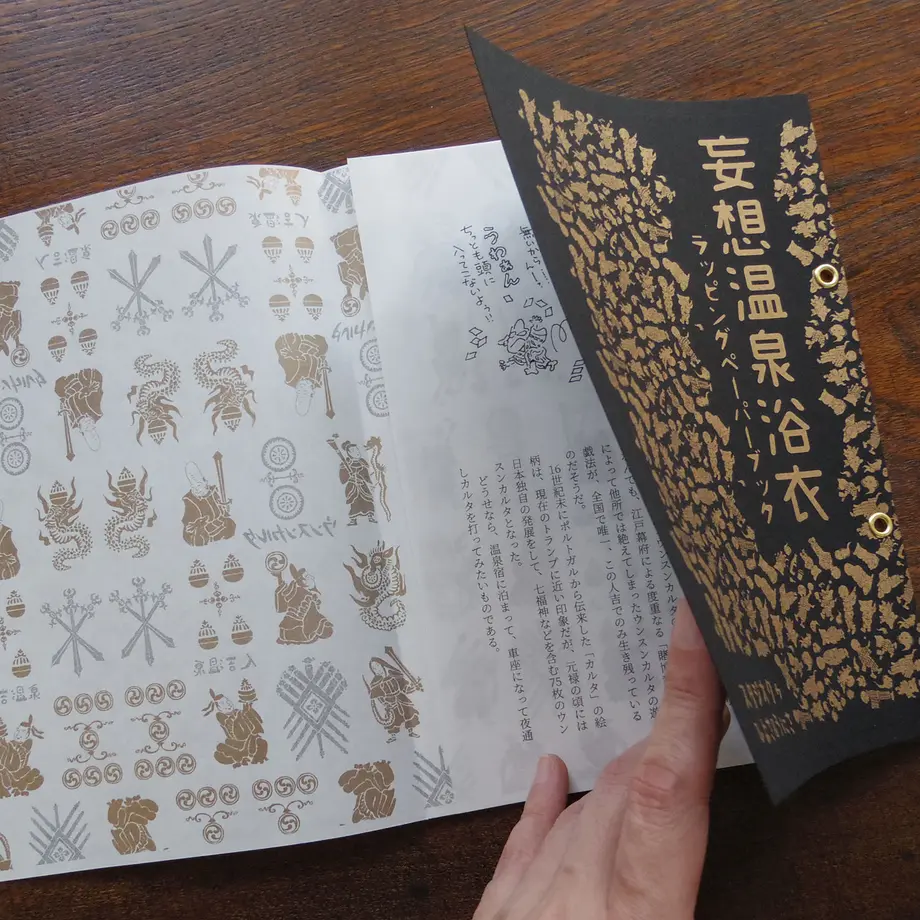 妄想温泉浴衣
ラッピングペーパーブック
無いからー!!
うわぁん。
ちっとも頭に
入ってこないよう!!
ウンスンカルタ
んでも、江戸幕府による度重なる「賭博
によって他所では絶えてしまったウンスンカルタの遊
戯法が、全国で唯一、この人吉でのみ生き残っている
のだそうだ。
16世紀末にポルトガルから伝来した「カルタ」の絵
柄は、現在のトランプに近い印象だが、元禄の頃には
日本独自の発展をして、七福神などを含む75枚のウン
スンカルタとなった。
どうせなら、温泉宿に泊まって、車座になって夜通
しカルタを打ってみたいものである。
人吉温泉
ウンスンカルタ
ウンスンカルタ
人吉温泉
人吉温泉